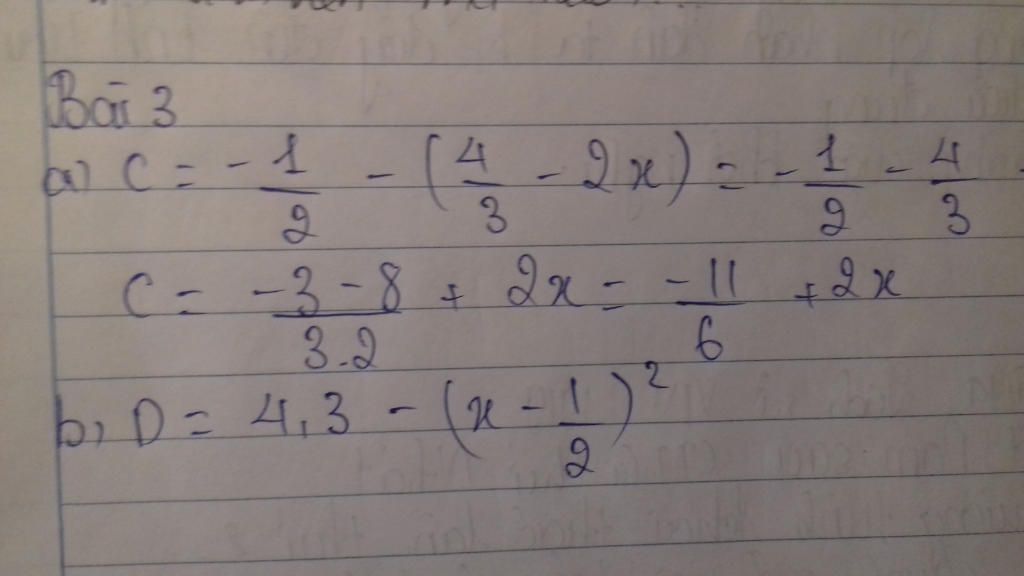 Bài 3
a) C = - 1/2 - (4/3 - 2x) = - 1/2 - 4/3
C = -3 - 8/3.2 + 2x = -11/6 + 2x
b, D = 4,3 - (x - 1/2)²